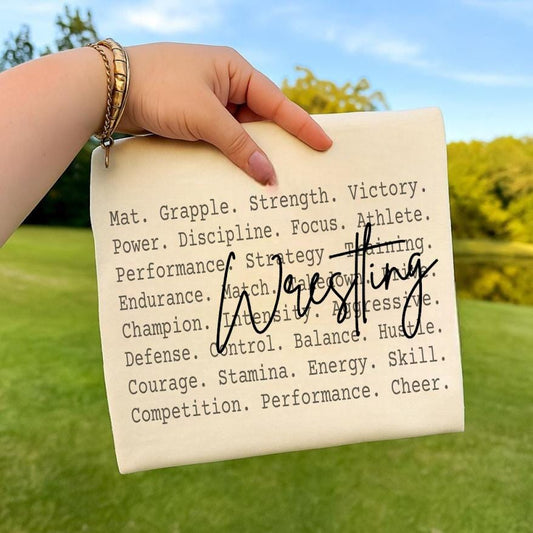 Mat. Grapple. Strength. Victory.
Power. Discipline. Focus. Athlete.
Performance. Strategy. Training.
Endurance. Match. Takedown. Pride.
Champion. Intensity. Aggressive.
Defense. Control. Balance. Hustle.
Courage. Stamina. Energy. Skill.
Competition. Performance. Cheer.
Wrestling